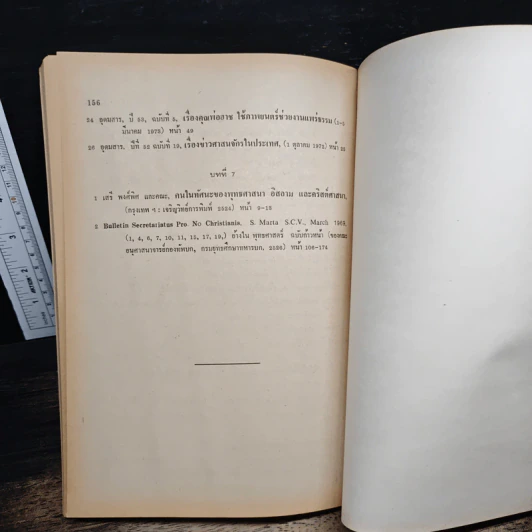 156
34 อุดมสาร, ปี 53, ฉบับที่ 5, เรื่องคุณพ่อราช ใช้ภาพยนตร์ช่วยงานแพร่ธรรม (1-5
มีนาคม 1973) หน้า 49
35 อุดมสาร. ปีที่ 52 ฉบับที่ 19, เรื่องข่าวศาสนจักรในประเทศ, (1 ตุลาคม 1972) หน้า
บทที่ 7
1 เสรี พงศ์พิศ และคณะ, คนในทัศนะของพุทธศาสนา อิสลาม และคริสต์ศาสนา,
(กรุงเทพ ฯ : เจริญวิทย์การพิมพ์ 2524) หน้า 9-18
2 Bulletin Secretariatus Pro No Christianis, S. Marta S.C.V., March 1969,
(1, 4, 6, 7, 10, 11, 15, 17, 19,) อ้างใน พุทธศาสตร์ ฉบับก้าวหน้า (ของคณะ
อนุศาสนาจารย์กองทัพบก, กรมยุทธศึกษาทหารบก, หน้า 108-174